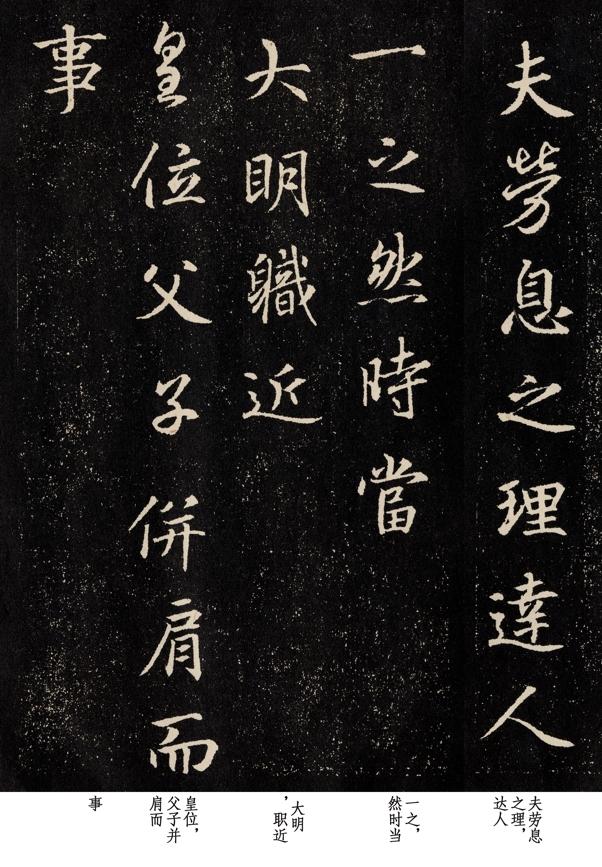 夫勞息之理達人
一之然時當
大明職近
皇位父子併肩而
事
夫劳息
之理，
达人
一之，
然时当
大明
，职近
皇位，
父子并
肩而
事